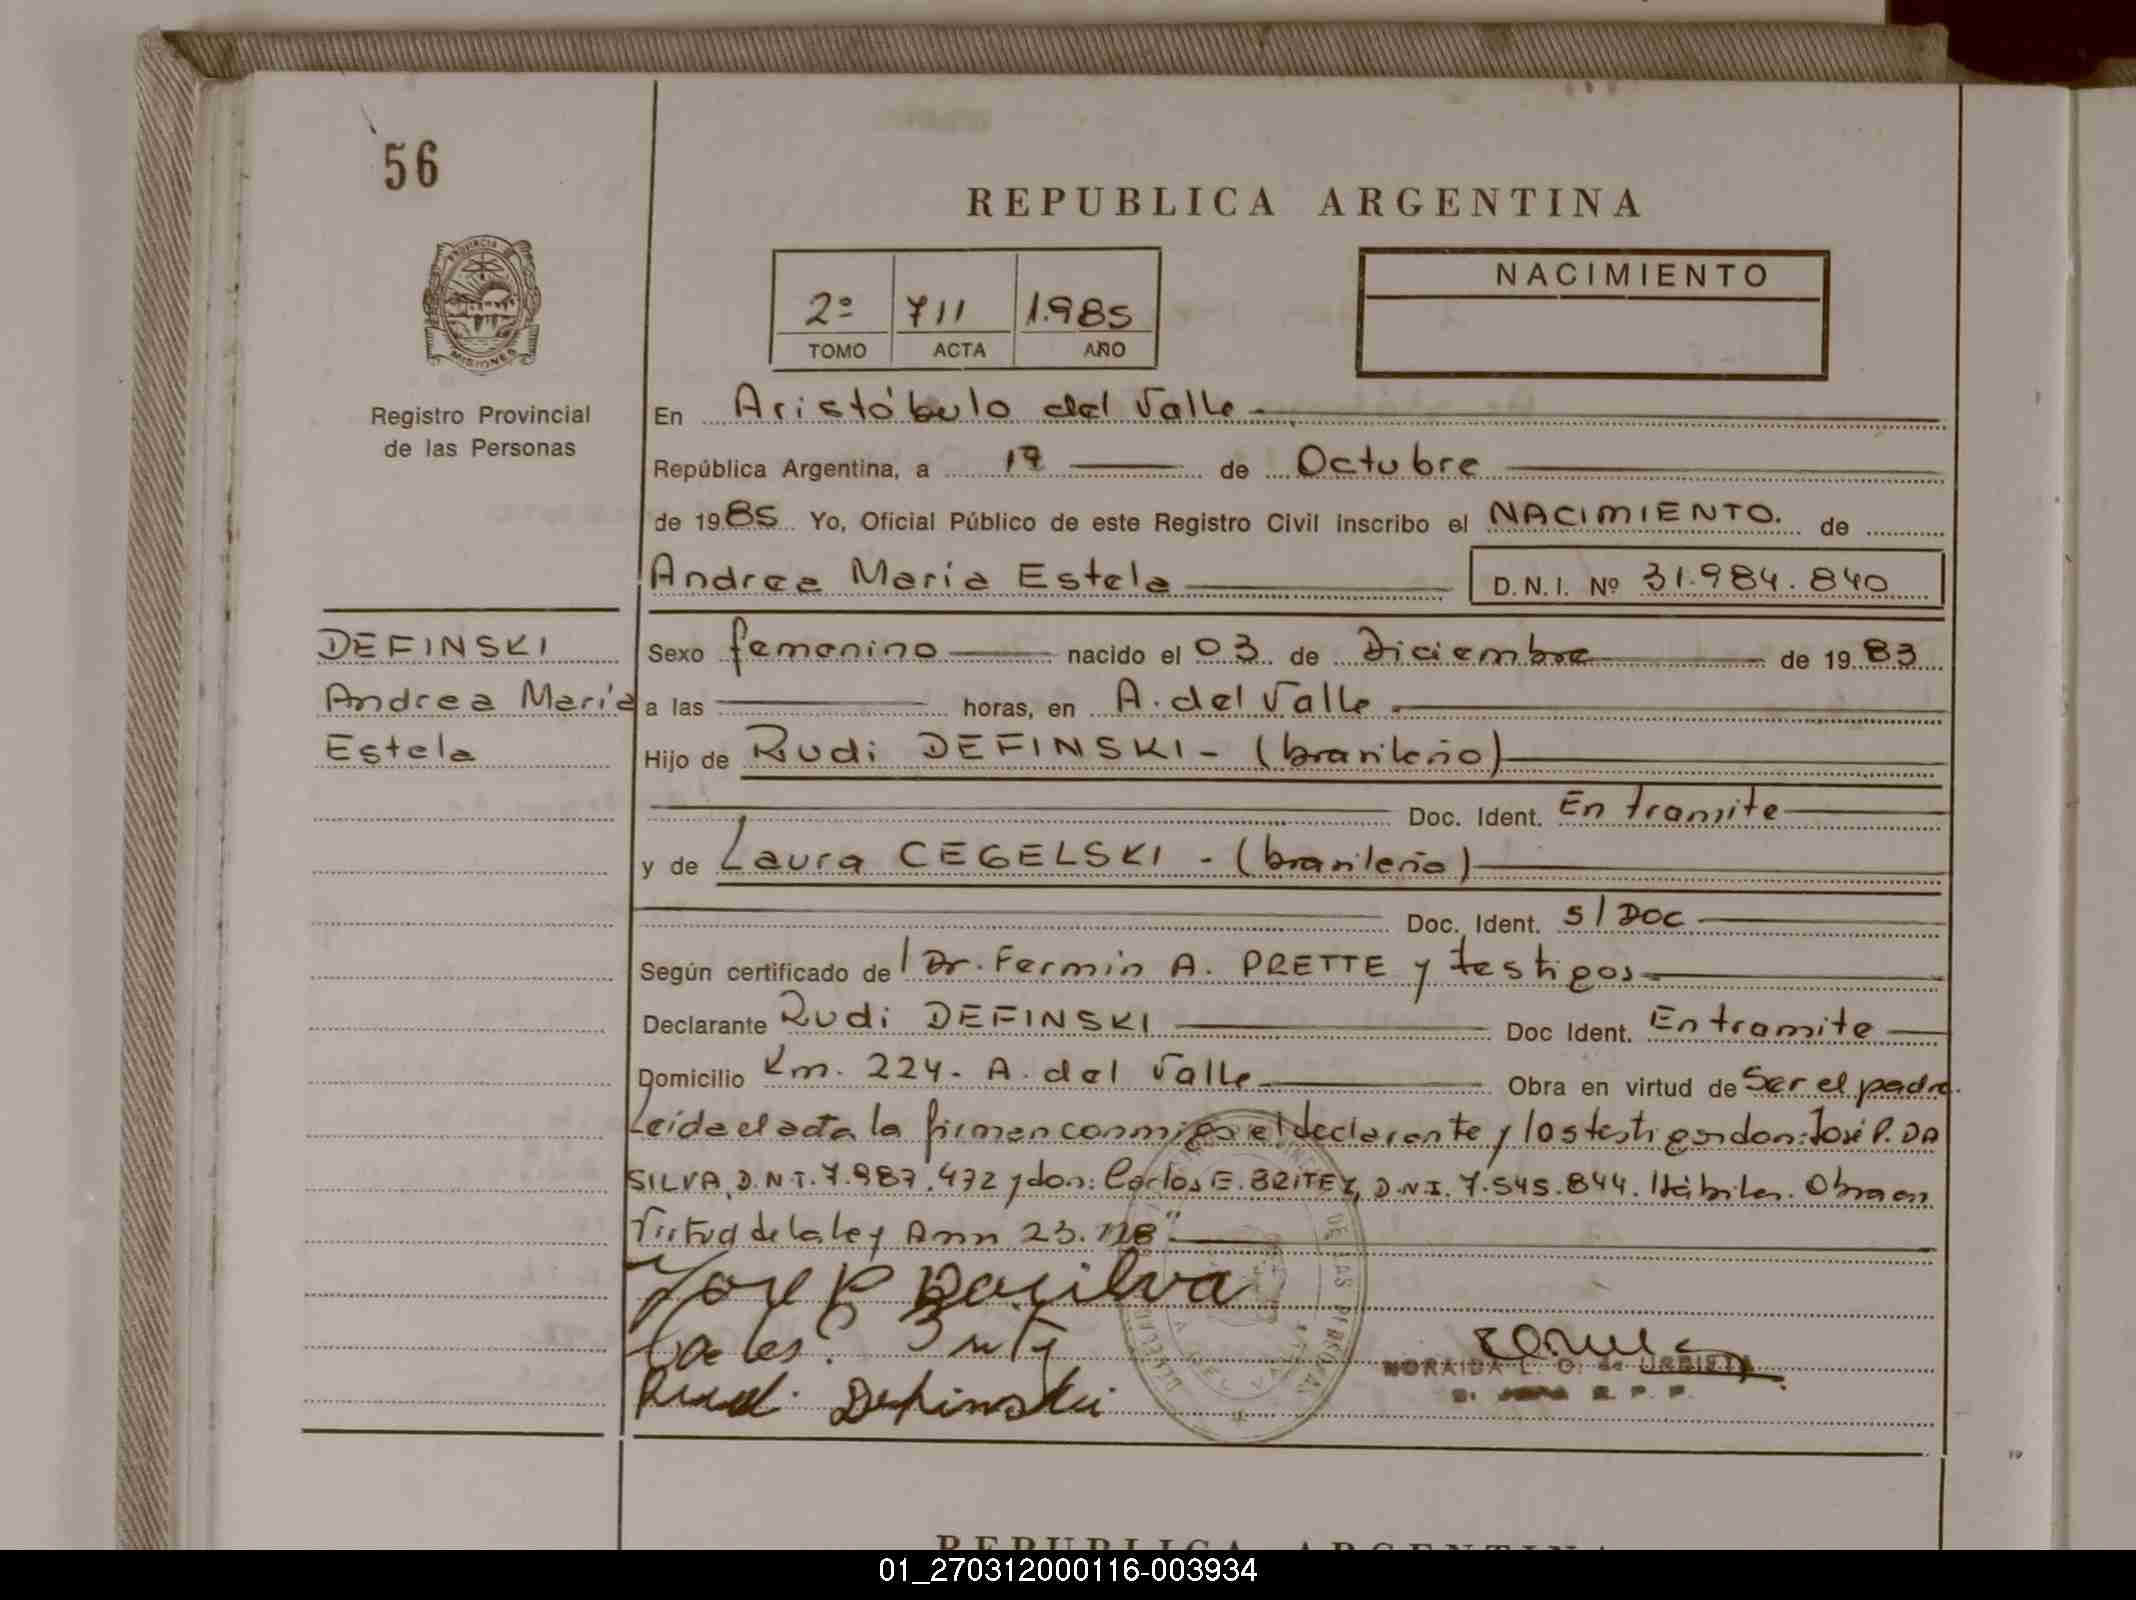 56
REPUBLICA ARGENTINA
PROVINCIA DE
MISIONES
Registro Provincial
de las Personas
2º 711 1.985
TOMO ACTA AÑO
NACIMIENTO
En Aristóbulo del Valle
República Argentina, a 17 de Octubre
de 1985 Yo, Oficial Público de este Registro Civil inscribo el NACIMIENTO. de
Andrea María Estela D.N.I. Nº 31.984.840
DEFINSKI
Andrea María
Estela
Sexo femenino nacido el 03 de Diciembre de 1983
a las horas, en A. del Valle
Hijo de Rudi DEFINSKI - (brasileño)
Doc. Ident. En tramite
y de Laura CEGELSKI - (brasileño)
Doc. Ident. S/DOC
Según certificado de Dr. Fermín A. PRETTE y testigos
Declarante Rudi DEFINSKI Doc Ident. En tramite
Domicilio Km. 224. A. del Valle Obra en virtud de Ser el padre.
Leída el acta la firman conmigo el declarante y los testigos don: José P. DA
SILVA, D.N.I. 7.987.472 y don: Carlos E. BRITEZ, D.N.I. 7.545.844. Hábiles. Obra en
Virtud de la ley Amn 23.
José P Dasilva
Rudi Definski
NORAIDA L. O. de URBIETA
R. P. P.
REPUBLICA ARGENTINA
01_270312000116-003934